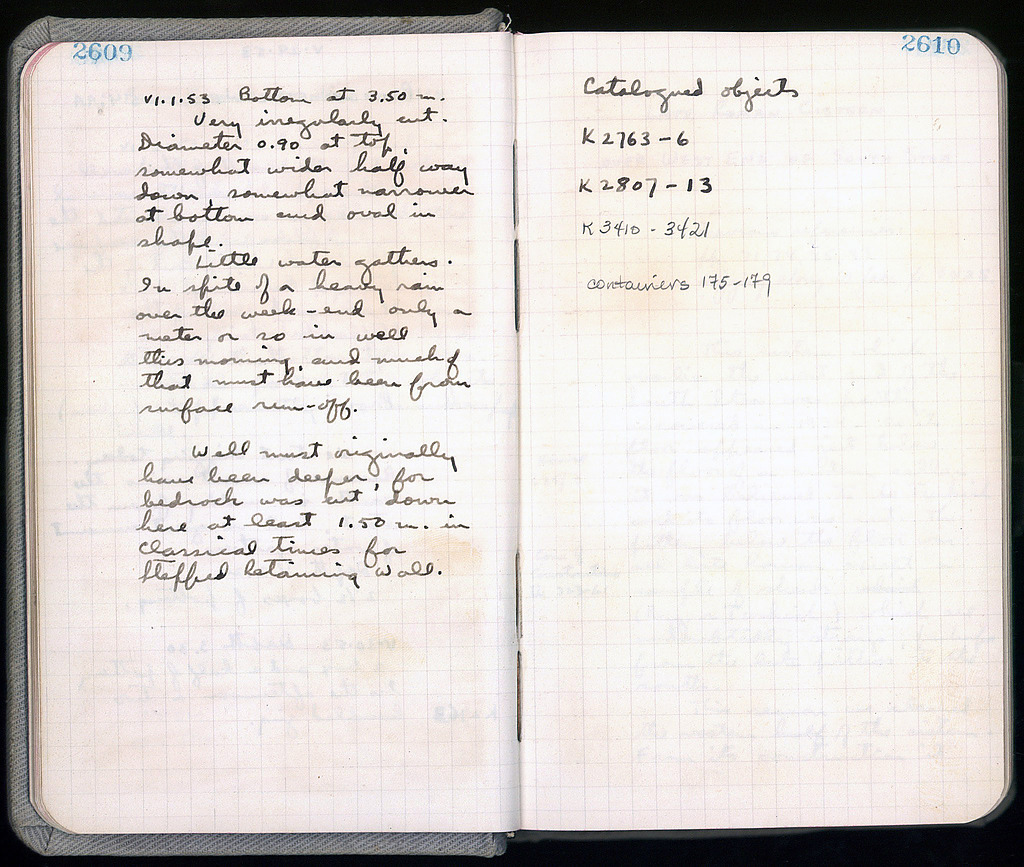 2609
VI.1.53 Bottom at 3.50 m.
Very irregularly cut.
Diameter 0.90 at top,
somewhat wider half way
down, somewhat narrower
at bottom and oval in
shape.
Little water gathers.
In spite of a heavy rain
over the week-end only a
meter or so in well
this morning, and much of
that must have been from
surface run-off.
Well must originally
have been deeper, for
bedrock was cut down
here at least 1.50 m. in
classical times for
stepped retaining wall.
2610
Catalogued objects
K 2763-6
K 2807-13
K 3410-3421
containers 175-179